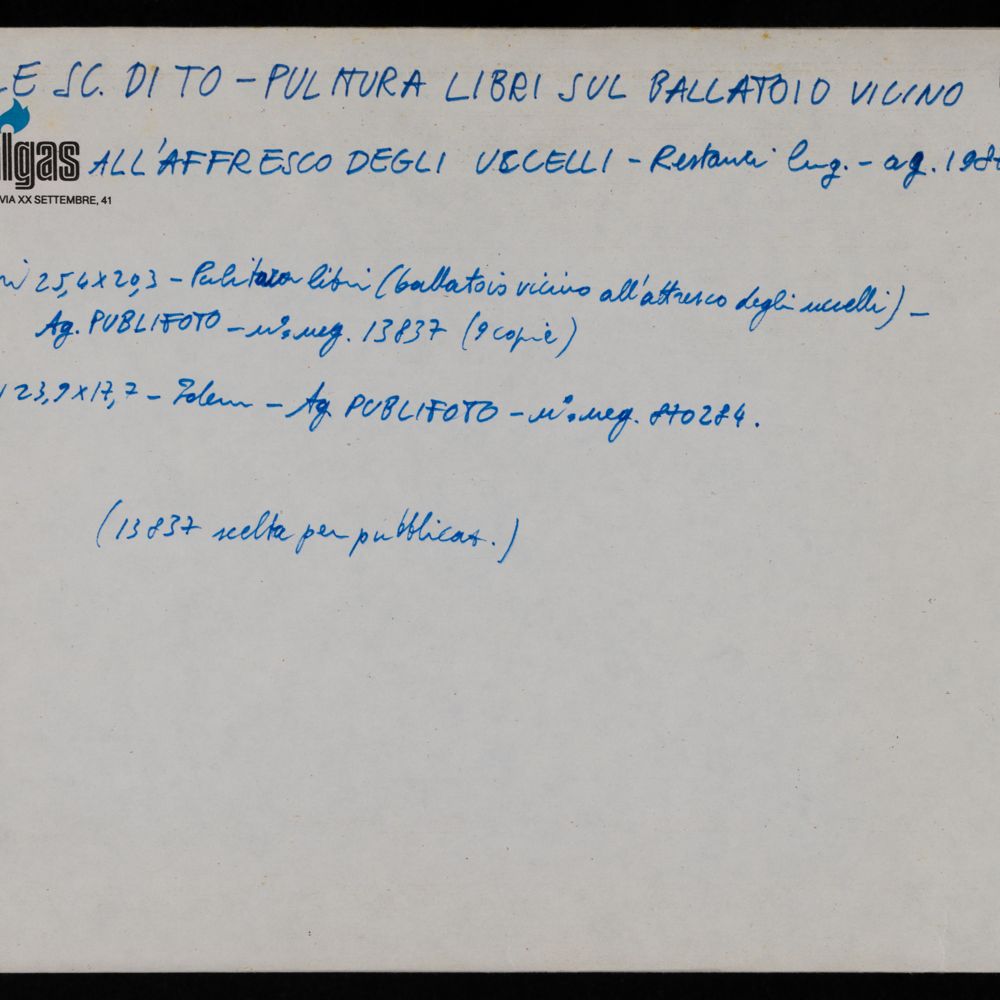 LE SC. DI TO - PULITURA LIBRI SUL BALLATOIO VICINO
ALL'AFFRESCO DEGLI UCCELLI - Restauri lug. - ag. 198
lgas
VIA XX SETTEMBRE, 41
ni 25,4x20,3 - Pulitura libri (ballatoio vicino all'affresco degli uccelli) -
Ag. PUBLIFOTO - n°. neg. 13837 (9 copie)
23,9x17,7 - Idem - Ag. PUBLIFOTO - n°. neg. 870284.
(13837 scelta per pubblicaz.)